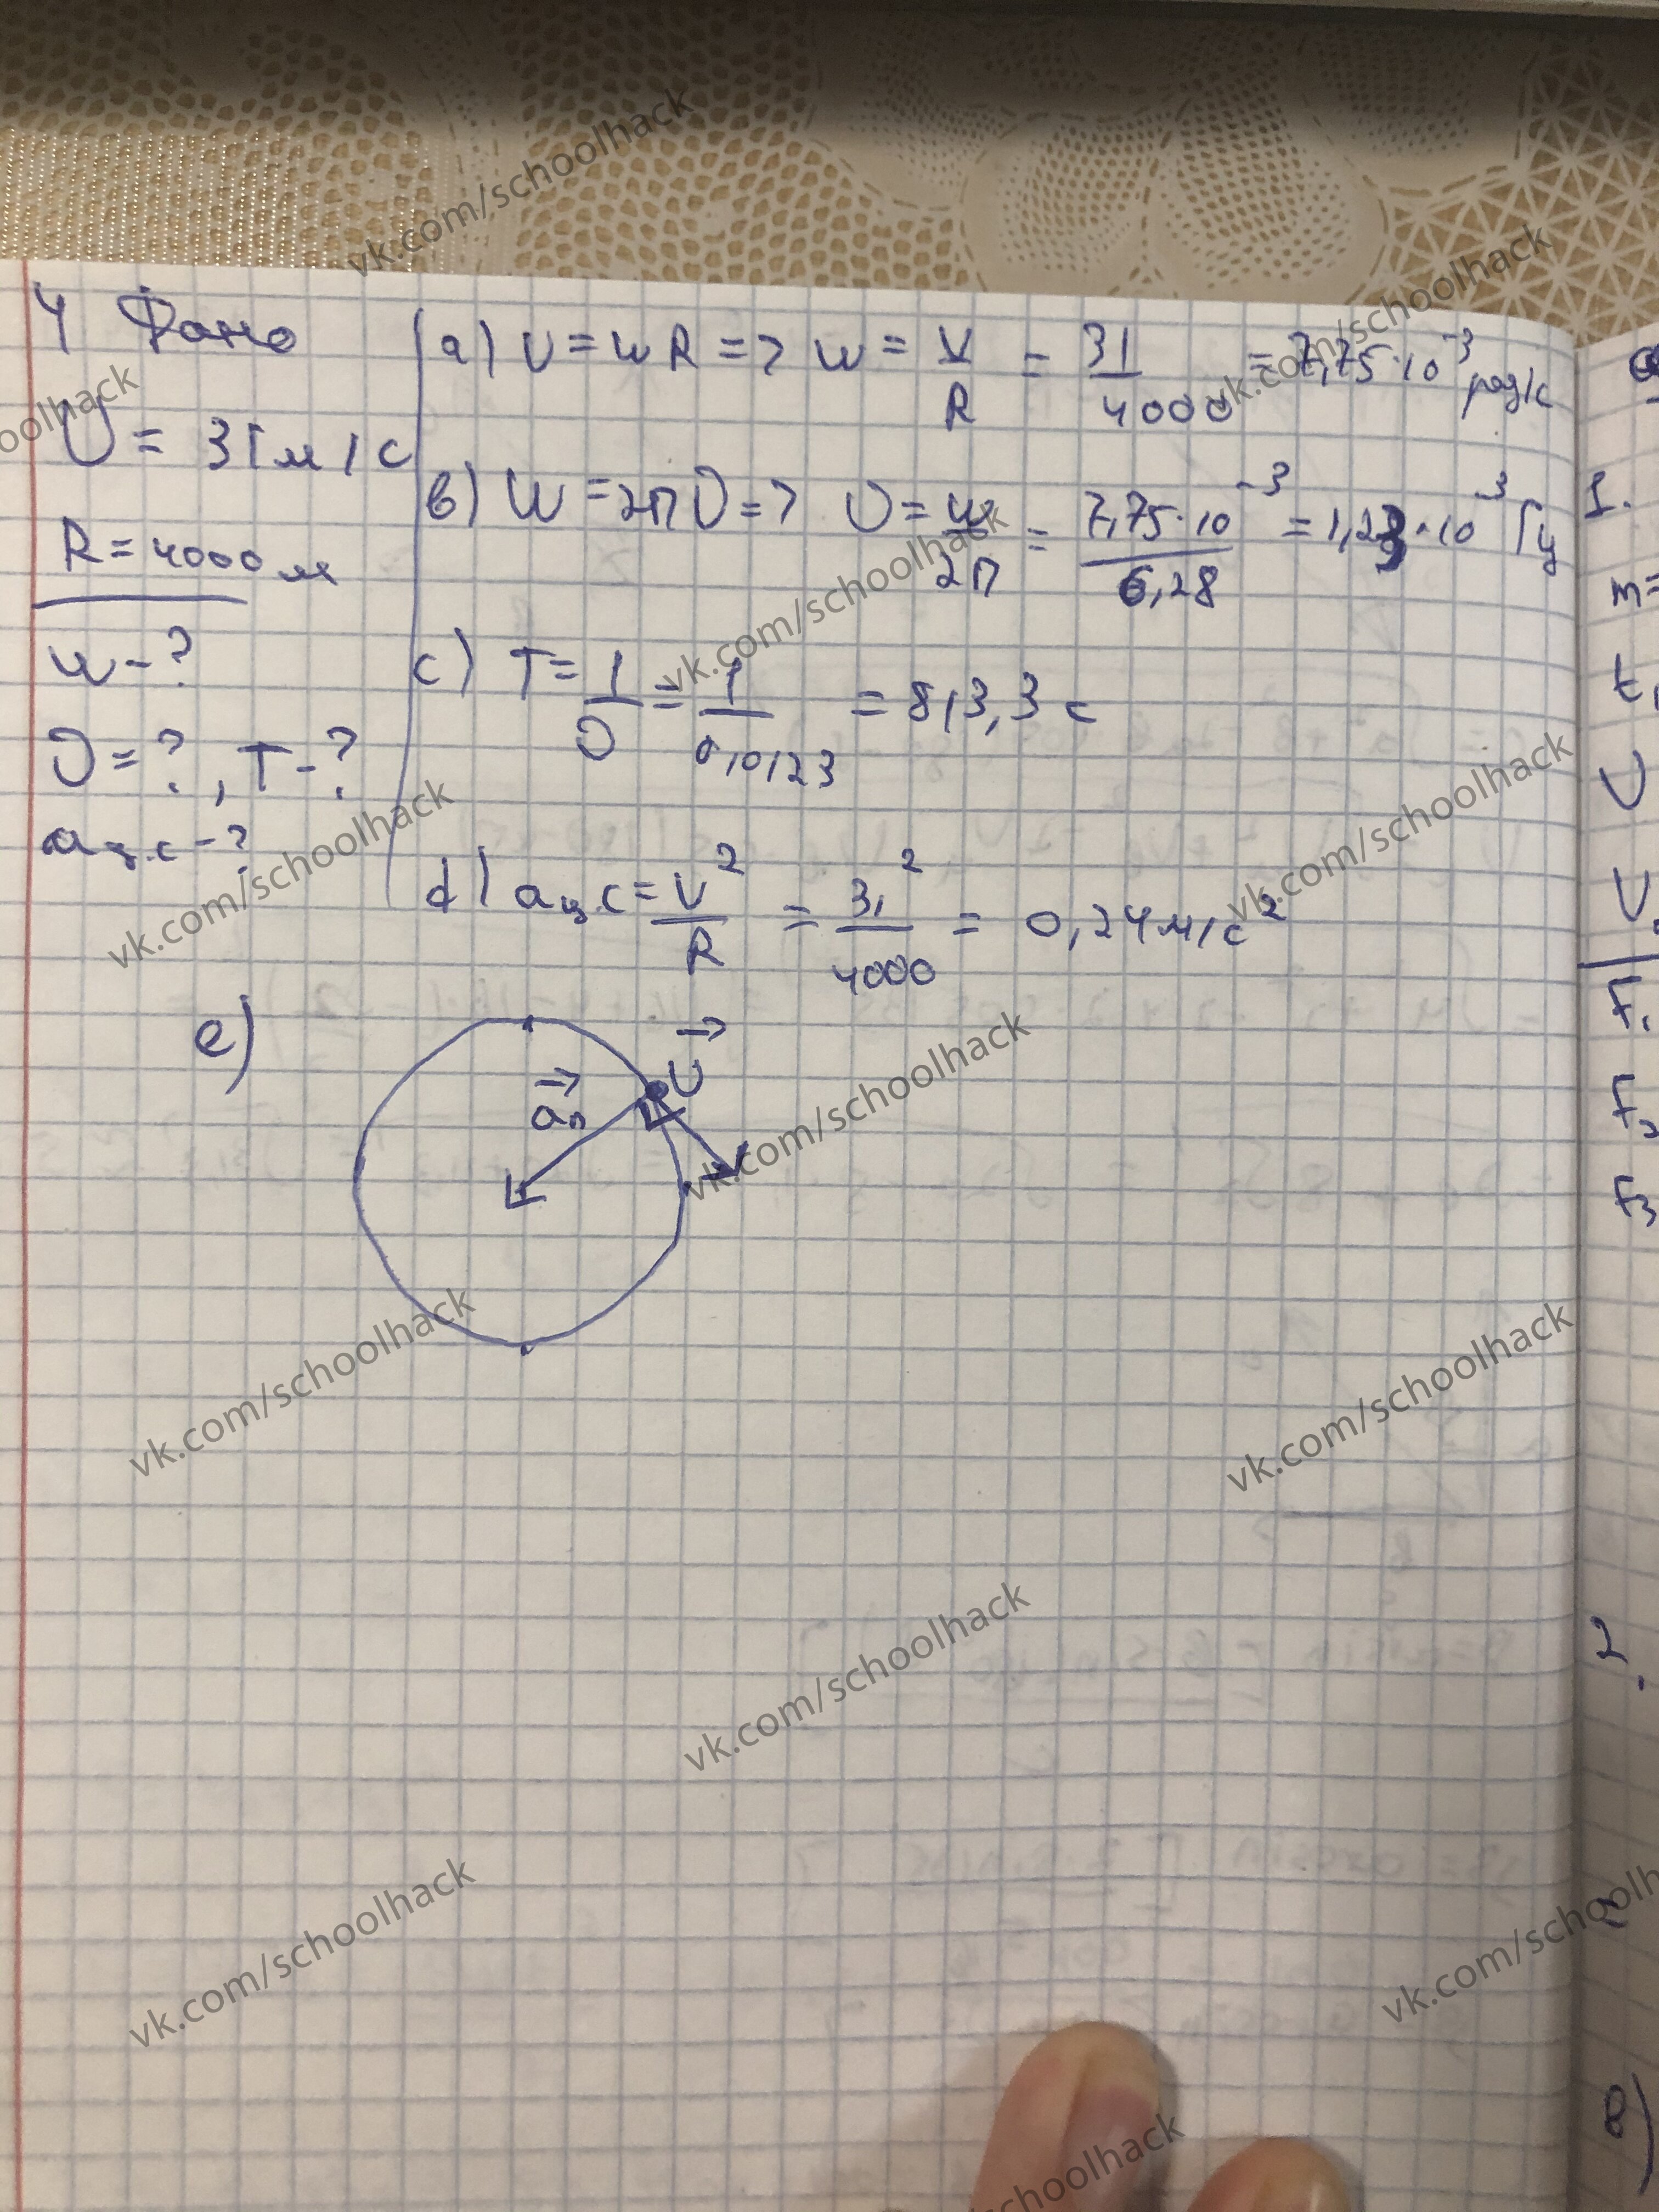 4 Дано
υ = 31 м/с
R = 4000 м
w - ?
υ = ? , T - ?
aц.с - ?
a) υ = wR => w = V/R = 31/4000 = 7,75·10^-3 рад/с
в) w = 2πυ => υ = w/2π = 7,75·10^-3/6,28 = 1,23·10^-3 Гц
c) T = 1/υ = 1/0,0123 = 813,3 с
d) aц.с = V^2/R = 31^2/4000 = 0,24 м/с^2
e)
→υ
→an
1.
m=
t1
υ
F1
F2
F3
2.
в)
vk.com/schoolhack
vk.com/schoolhack
schoolhack
vk.com/schoolhack
vk.com/schoolhack
vk.com/schoolhack
vk.com/schoolhack
vk.com/schoolhack
vk.com/schoolhack
vk.com/schoolhack
vk.com/schoolhack
vk.com/schoolhack
vk.com/schoolhack
schoolhack